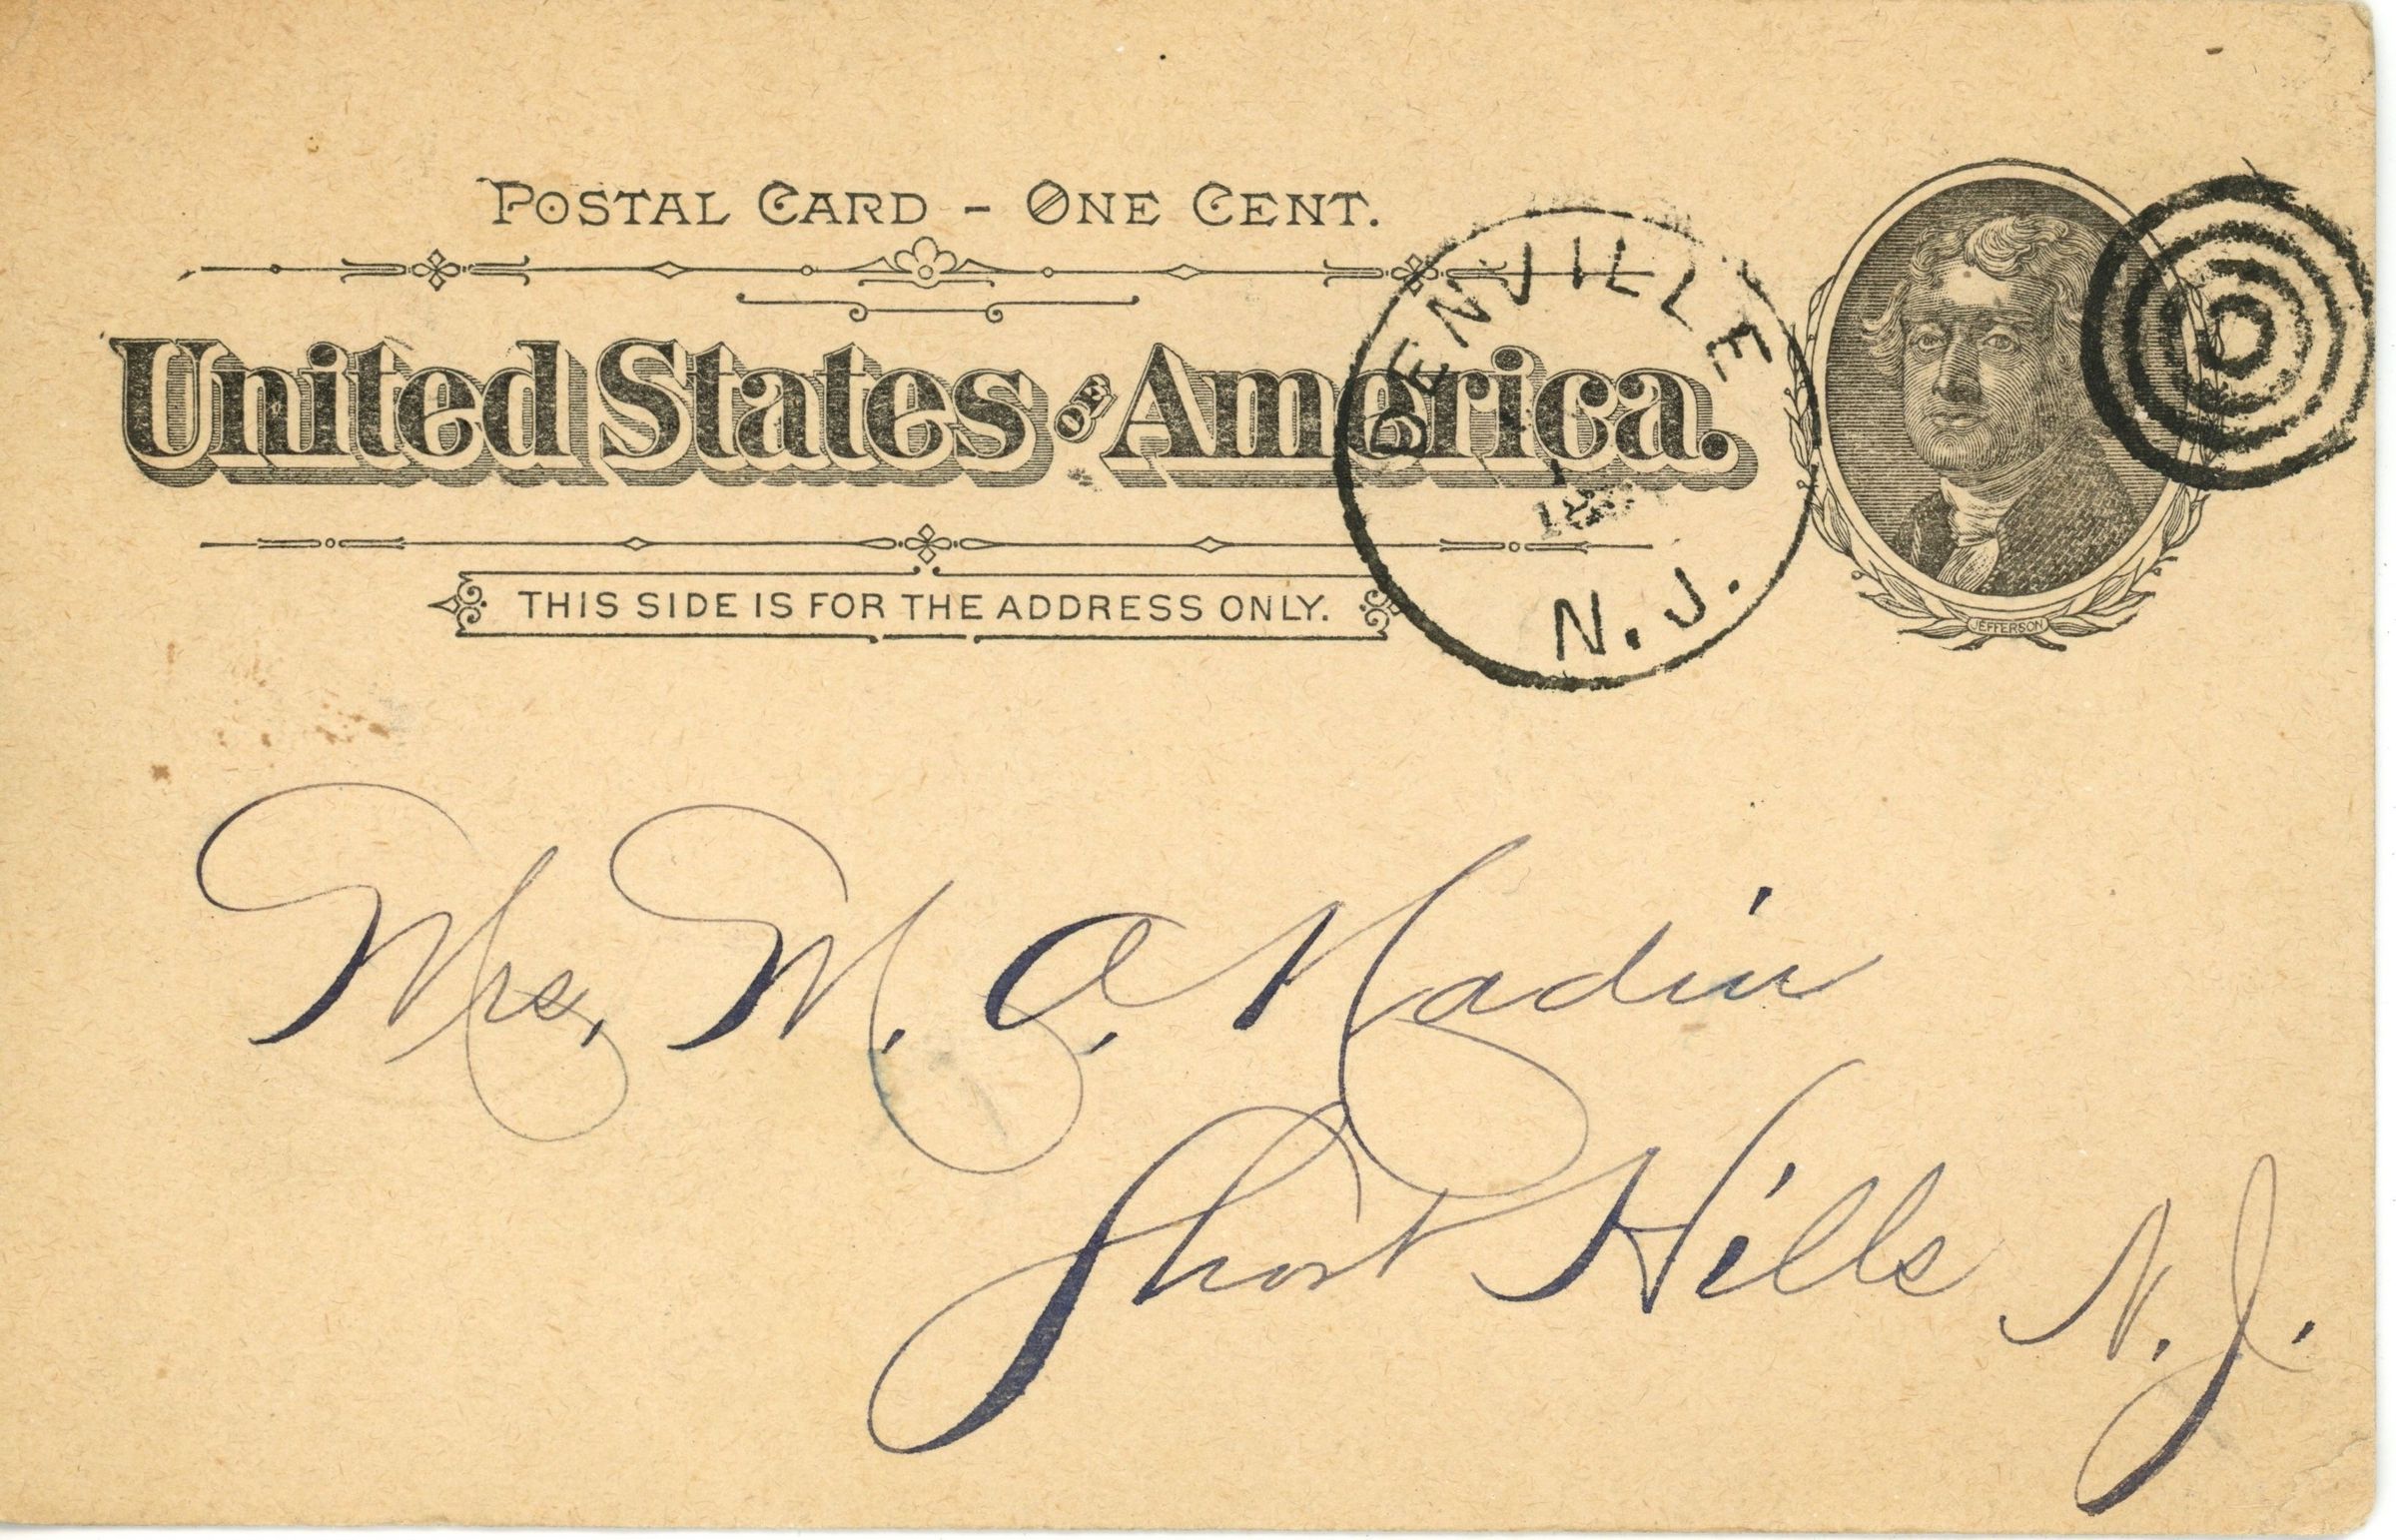 POSTAL CARD - ONE CENT.
United States OF America.
THIS SIDE IS FOR THE ADDRESS ONLY.
DENVILLE
N.J.
JEFFERSON
Mrs. M. A. Nadin
Short Hills N.J.